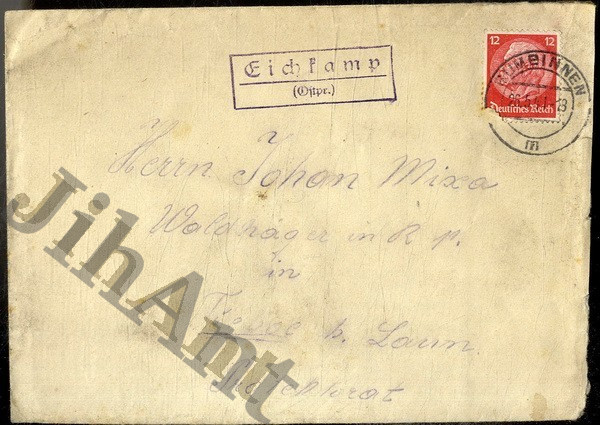 Eichkamp
(Ostpr.)
12 12
Deutsches Reich
GUMBINNEN
m
Herrn Johan Mixa
Waldhäger in R. p.
in
b. Laun.
JihAmt